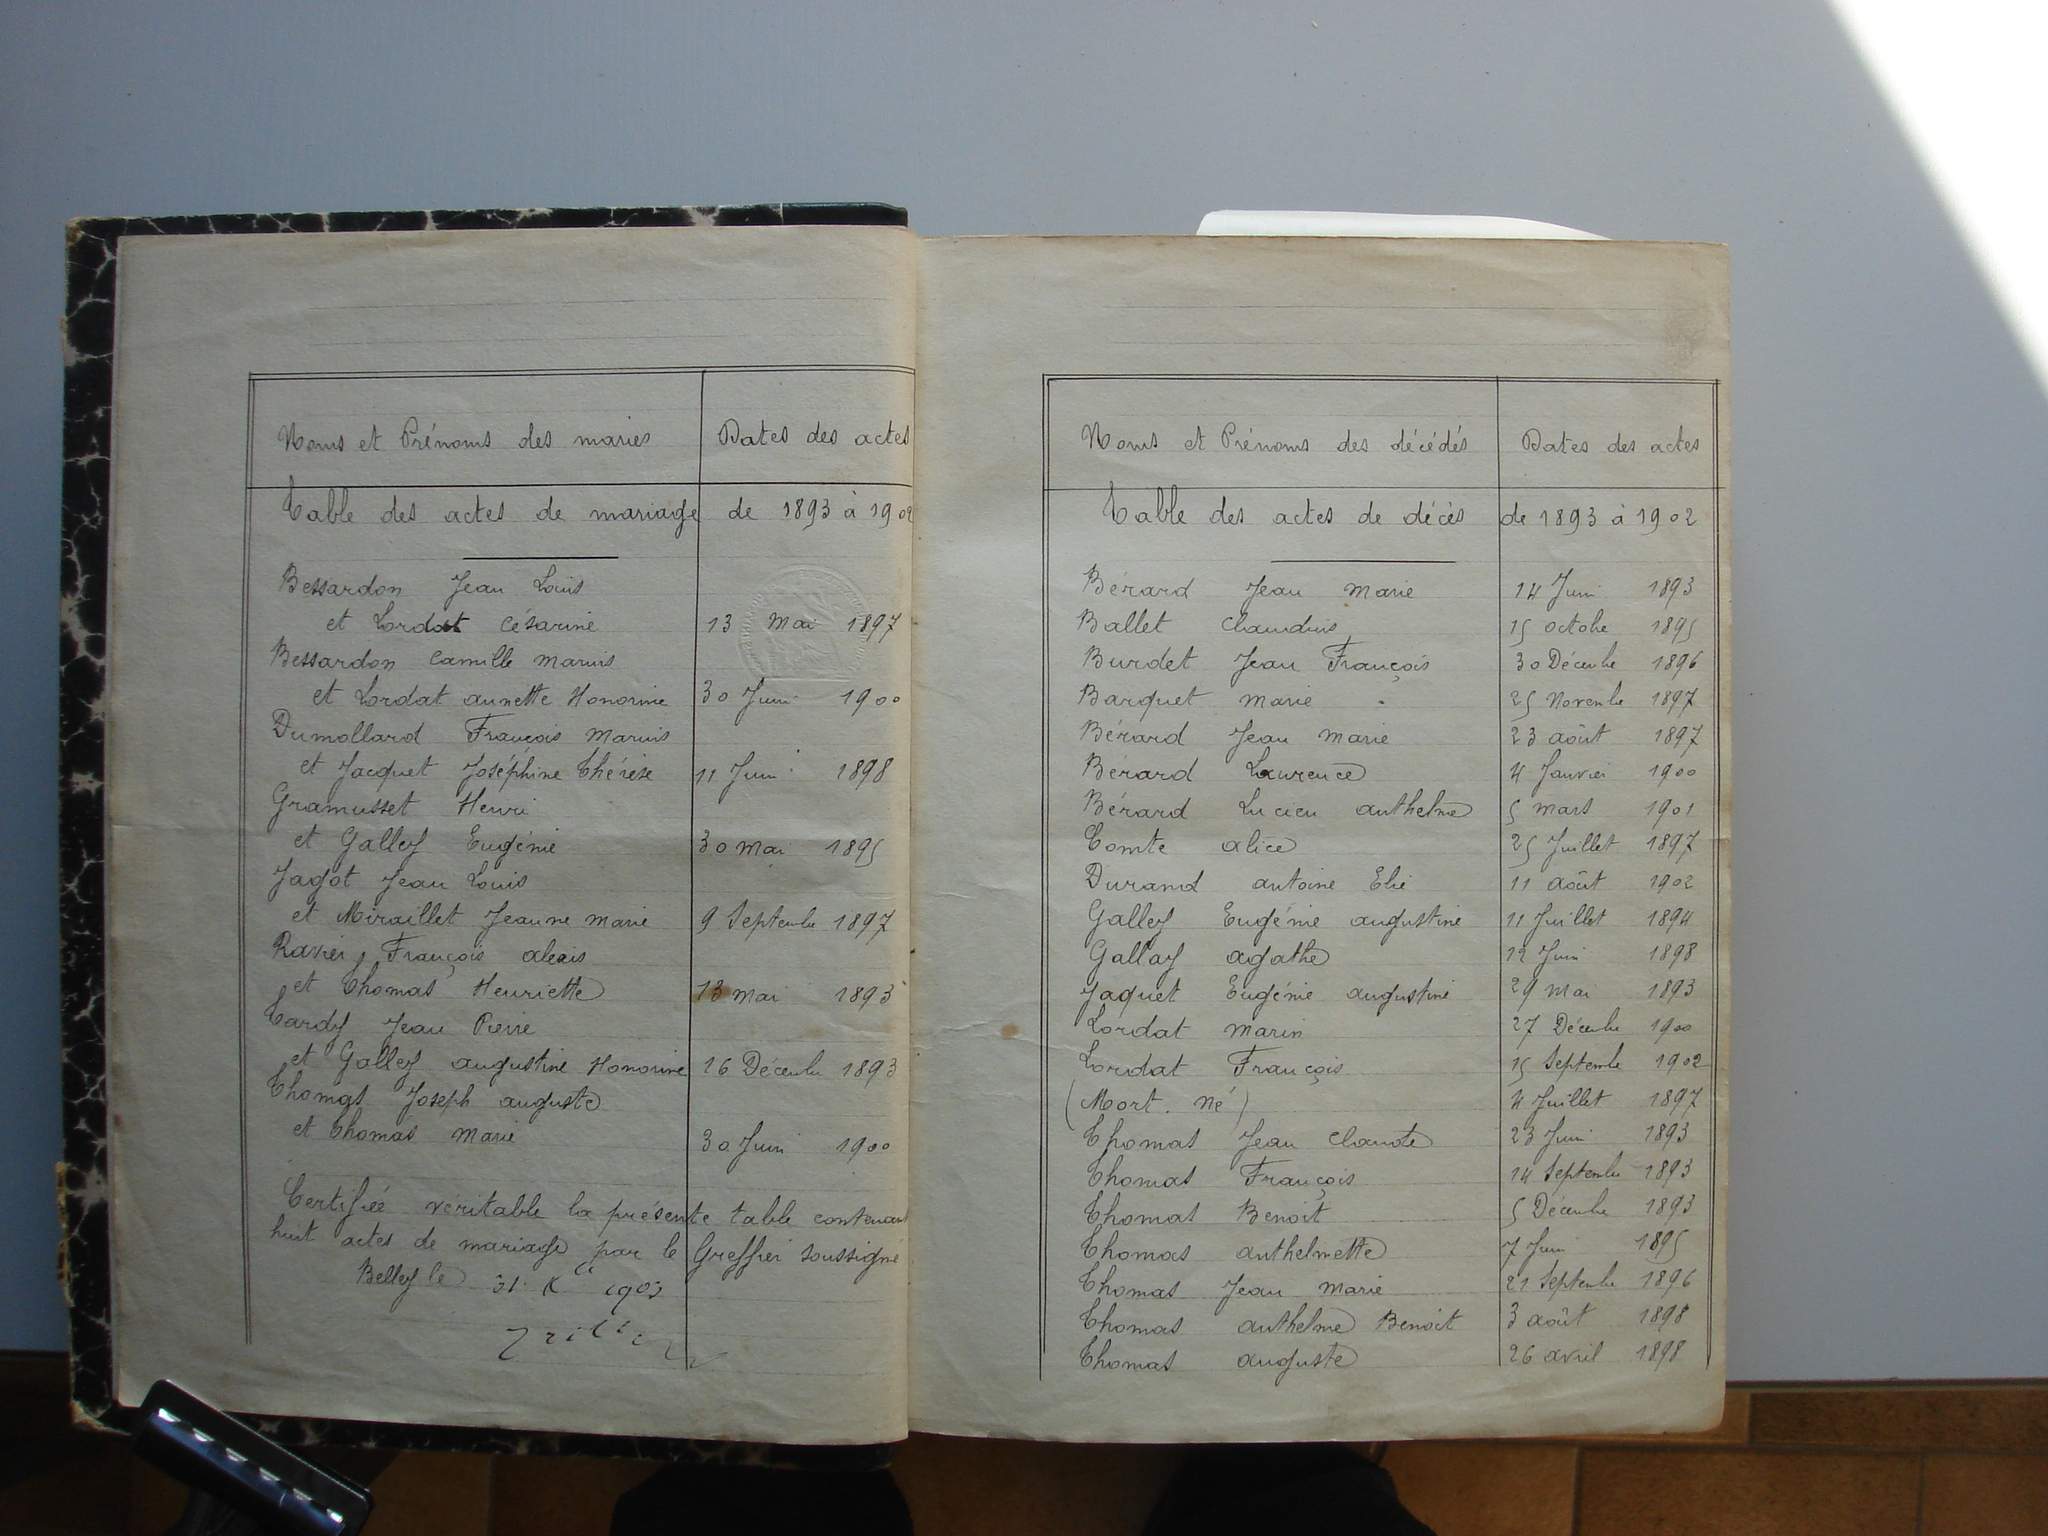 Noms et Prénoms des mariés Dates des actes
Table des actes de mariage de 1893 à 1902
Bessardon Jean Louis
et Lordat Césarine 13 Mai 1897
Bessardon Camille Marius
et Lordat annette Honorine 30 Juin 1900
Dumollard François Marius
et Jacquet Joséphine Thérèse 11 Juin 1898
Gramusset Henri
et Galley Eugénie 30 Mai 1895
Jagot Jean Louis
et Miraillet Jeanne Marie 9 Septembre 1897
Ravier François alexis
et Thomas Henriette 13 Mai 1893
Tardy Jean Pierre
et Galley augustine Honorine 16 Décembre 1893
Thomas Joseph auguste
et Thomas Marie 30 Juin 1900
Certifiée véritable la présente table contenant
huit actes de mariage par le Greffier soussigné
Belley le 31 Xbre 1903
Noms et Prénoms des décédés Dates des actes
Table des actes de décès de 1893 à 1902
Bérard Jean Marie 14 Juin 1893
Ballet Claudius 15 octobre 1895
Burdet Jean François 30 Décembre 1896
Barquet Marie 25 Novembre 1897
Bérard Jean Marie 23 août 1897
Bérard Laurence 4 Janvier 1900
Bérard Lucien anthelme 5 Mars 1901
Comte alice 25 Juillet 1897
Durand antoine Elie 11 août 1902
Galley Eugénie augustine 11 Juillet 1894
Gallay agathe 12 Juin 1898
Jaquet Eugénie augustine 29 Mai 1893
Lordat Marin 27 Décembre 1900
Lordat François 15 Septembre 1902
(Mort. Né) 4 Juillet 1897
Thomas Jean Claude 23 Juin 1893
Thomas François 14 Septembre 1893
Thomas Benoit 5 Décembre 1893
Thomas anthelmette 7 Juin 1895
Thomas Jean Marie 21 Septembre 1896
Thomas anthelme Benoit 3 août 1898
Thomas auguste 26 avril 1898